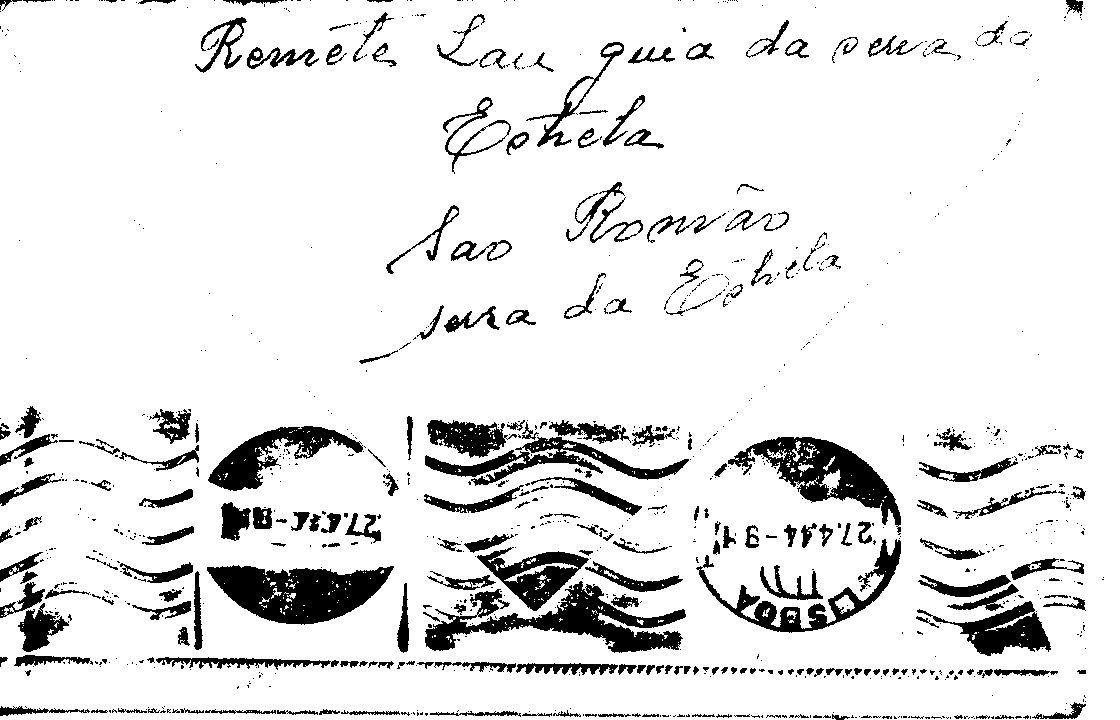 Remete Lau guia da serra da
Estrela
Sao Romão
serra da Estrela
27.4.44-9H
27.4.44-9H
LISBOA